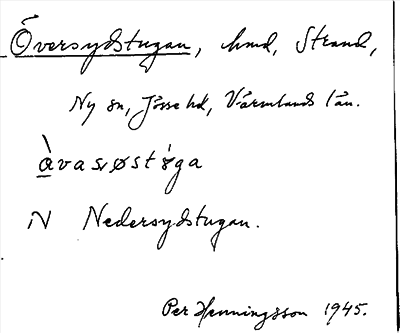 Översydstugan, hmd, Strand,
Ny sn, Jösse hd, Värmlands län.
àvasøstʹøga
N Nedersydstugan.
Per Henningsson 1945.